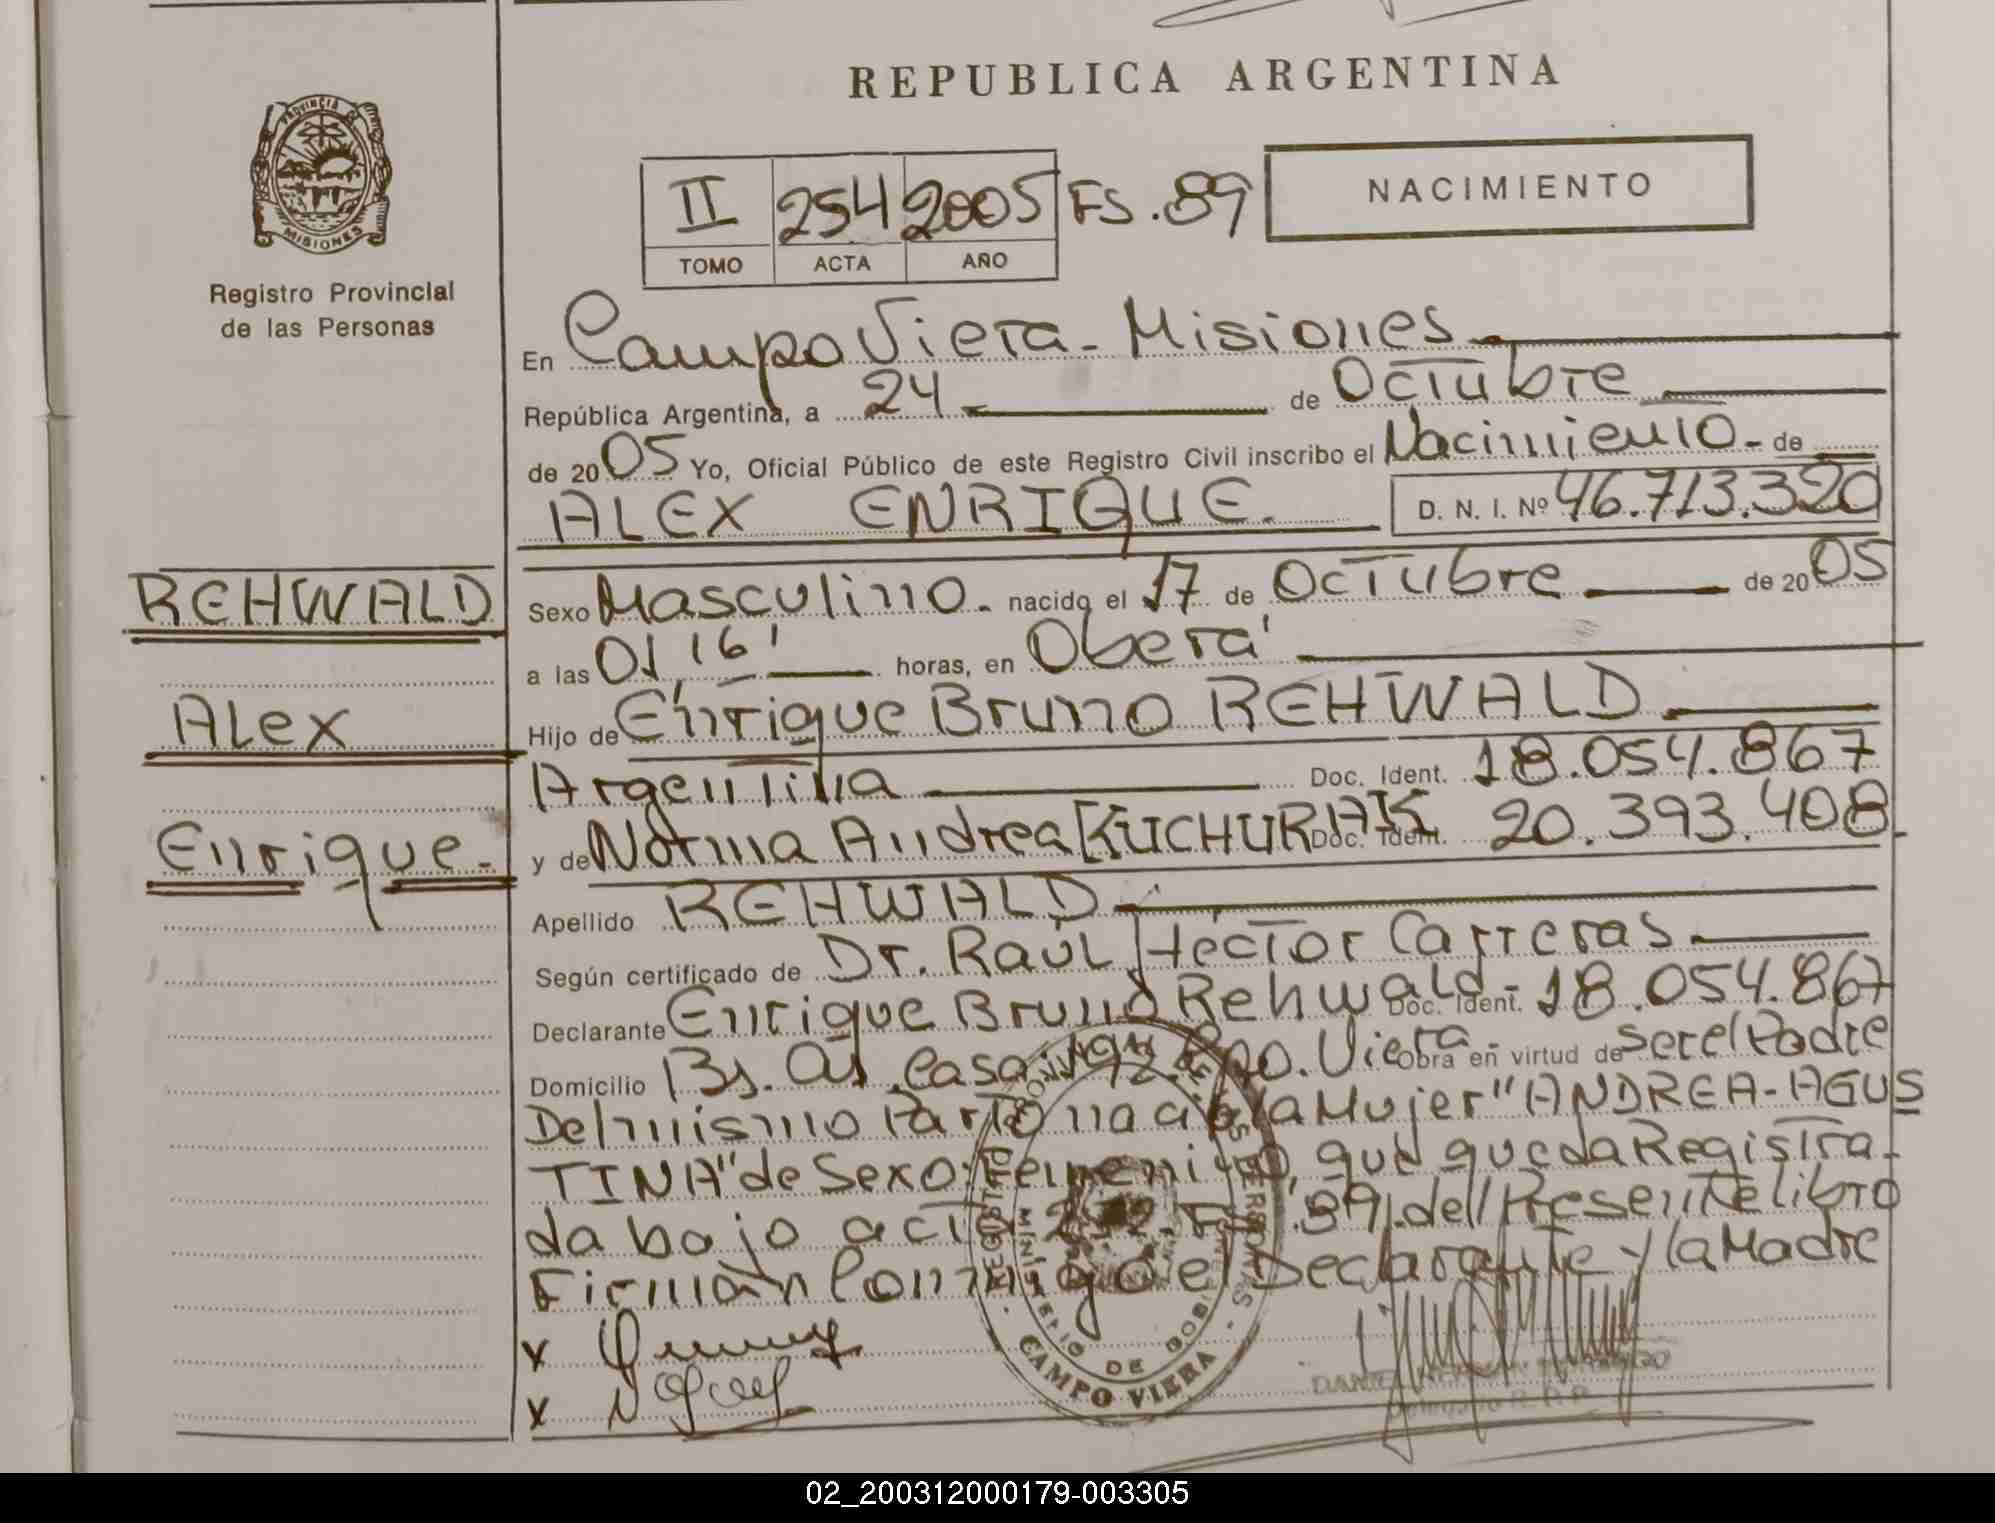 REPUBLICA ARGENTINA
PROVINCIA DE
MISIONES
Registro Provincial
de las Personas
II 254 2005 FS. 89
TOMO ACTA AÑO
NACIMIENTO
En Campo Viera - Misiones
República Argentina, a 24 de Octubre
de 2005 Yo, Oficial Público de este Registro Civil inscribo el Nacimiento - de
ALEX ENRIQUE. D. N. I. Nº 46.713.320
REHWALD
Alex
Enrique.
Sexo Masculino. nacido el 17 de Octubre de 2005
a las 01,16' horas, en Oberá
Hijo de Enrique Bruno REHWALD
Argentina Doc. Ident. 18.054.867
y de Norma Andrea KUCHURAK Doc. Ident. 20.393.408
Apellido REHWALD
Según certificado de Dr. Raúl Hector Carreras
Declarante Enrique Bruno Rehwald - Doc. Ident. 18.054.867
Domicilio Bs. As. Casa Viera - Obra en virtud de ser el Padre
Del mismo Parto nació la Mujer "ANDREA - AGUS
TINA" de Sexo: Femenino, que queda Registra-
da bajo acta 89, del Presente libro
Firman Conmigo el Declarante y la Madre
x
x
CAMPO VIERA
02_200312000179-003305